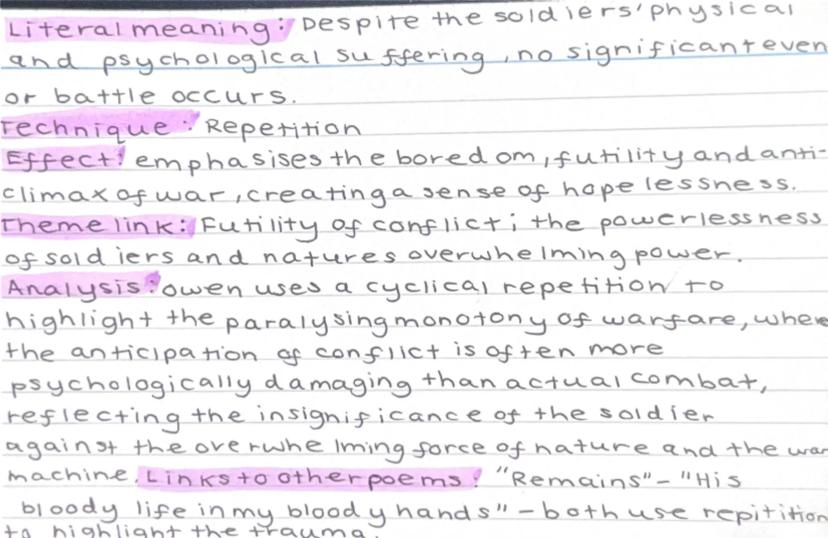 Literal meaning: Despite the soldiers' physical
and psychological suffering, no significant even
or battle occurs.
Technique: Repetition
Effect: emphasises the boredom, futility and anti-
climax of war, creating a sense of hopelessness.
Theme link: Futility of conflict; the powerlessness
of soldiers and natures overwhelming power.
Analysis: owen uses a cyclical repetition to
highlight the paralysing monotony of warfare, where
the anticipation of conflict is often more
psychologically damaging than actual combat,
reflecting the insignificance of the soldier
against the overwhelming force of nature and the war
machine. Links to other poems: "Remains" - "His
bloody life in my bloody hands" - both use repitition
to highlight the trauma.